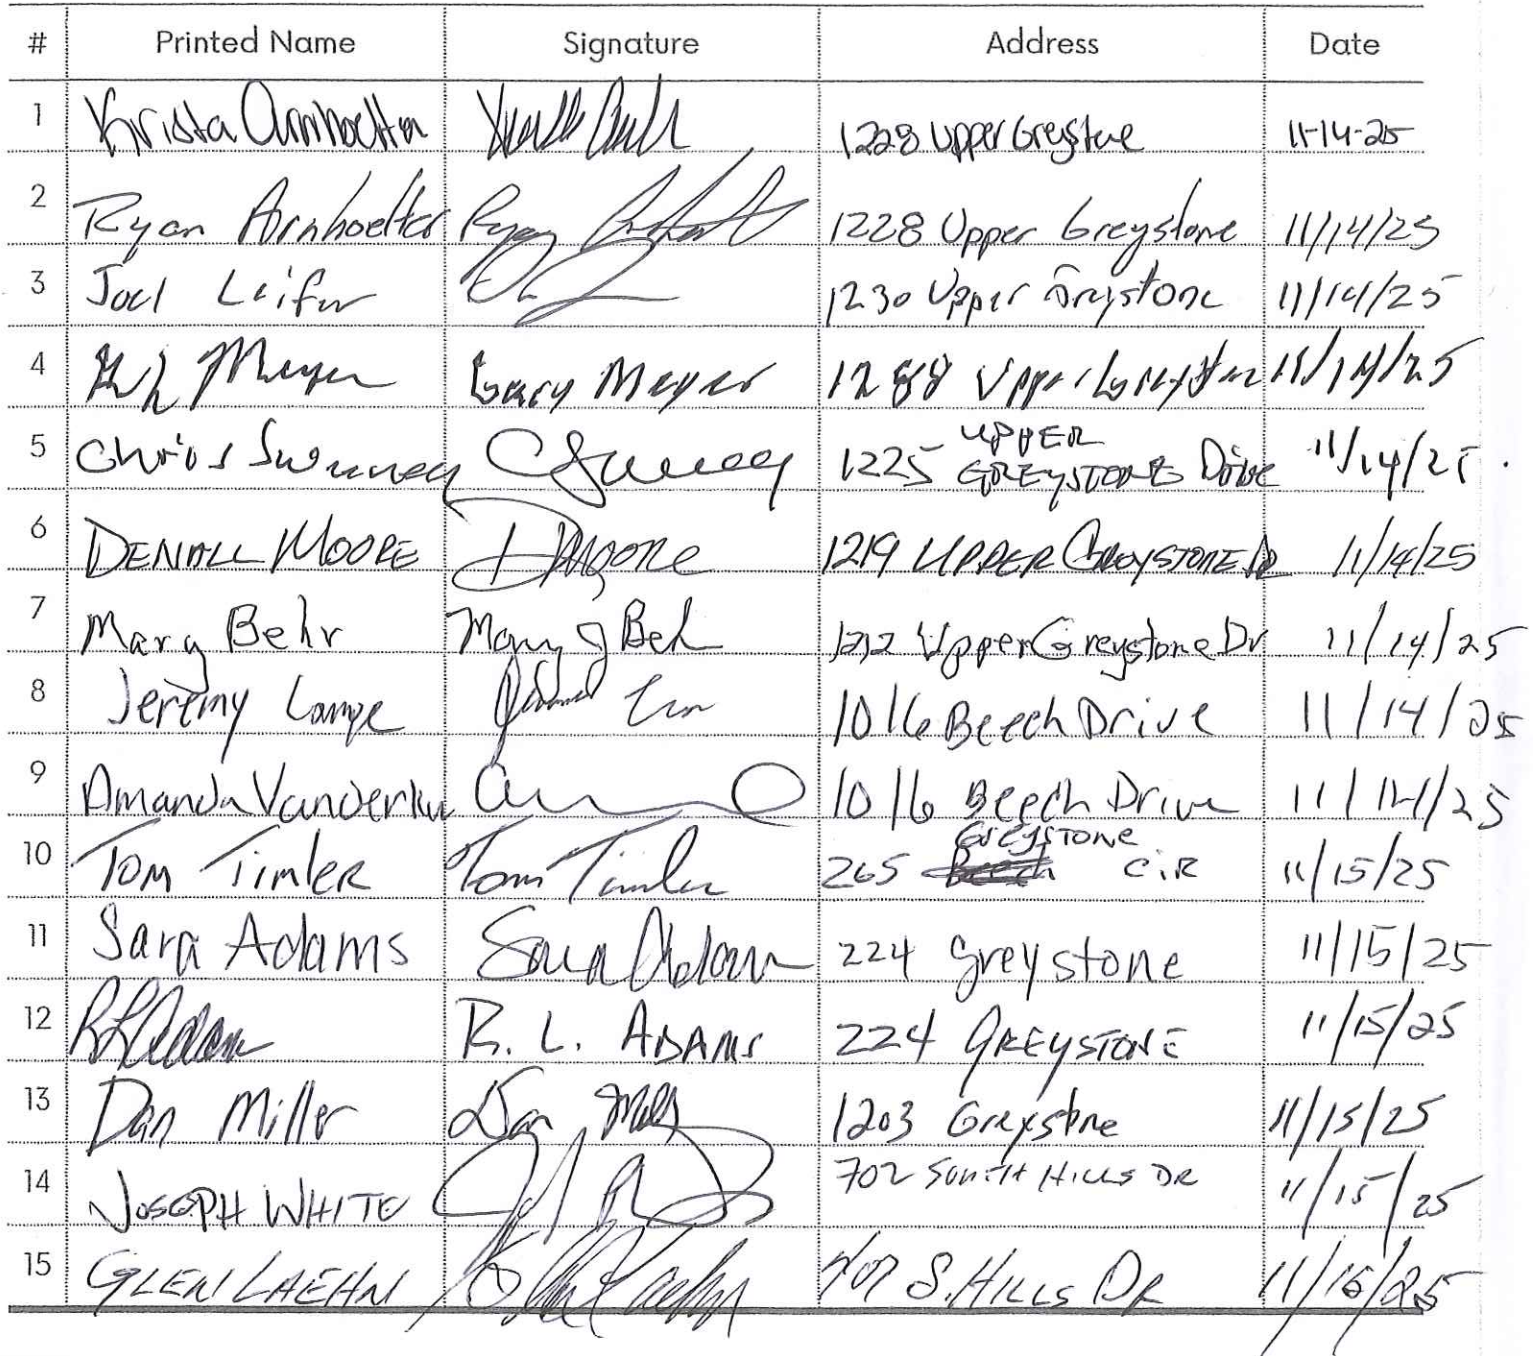 # Printed Name Signature Address Date
1 Krista Arnhoelter 1228 Upper Greystone 11-14-25
2 Ryan Arnhoelter Ryan 1228 Upper Greystone 11/14/25
3 Joel Leifer 1230 Upper Greystone 11/14/25
4 Meyer Gary Meyer 1288 Upper Greystone 11/14/25
UPPER
5 Chris Sweeney CSweeney 1225 GREYSTONE Drive 11/14/25
6 MOORE DMoore 1219 UPPER GREYSTONE DR 11/14/25
7 Mary Behr Mary J Behr 1212 Upper Greystone Dr 11/14/25
8 Jeremy Lange 1016 Beech Drive 11/14/25
9 Amanda 1016 Beech Drive 11/14/25
Greystone
10 Tom Timler Tom Timler 265 CiR 11/15/25
11 Sara Adams Sara Adams 224 Greystone 11/15/25
12 R. L. ADAMS 224 GREYSTONE 11/15/25
13 Dan Miller Dan 1203 Greystone 11/15/25
14 JOSEPH WHITE 702 SOUTH HILLS DR 11/15/25
15 GLEN LAEHN S. HILLS DR 25